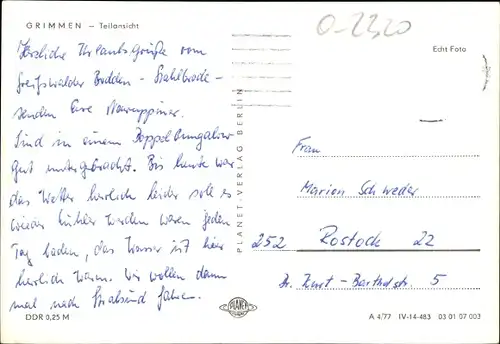 GRIMMEN – Teilansicht
0-22,20
Echt Foto
Herzliche Urlaubsgrüße vom
Greifswalder Bodden - Stahlbrode -
senden Eure Neuruppiner.
Sind in einem Doppelbungalow
gut untergebracht. Bis heute war
das Wetter herrlich leider soll es
wieder kühler werden waren jeden
Tag baden, das Wasser ist hier
herrlich warm. Wir wollen dann
mal nach Stralsund fahren.
PLANET-VERLAG BERLIN
Frau
Marion Schweder
252 Rostock 22
Dr. Kurt - Barthelstr. 5
DDR 0,25 M
PLANET
A 4/77 IV-14-483 03 01 07 003